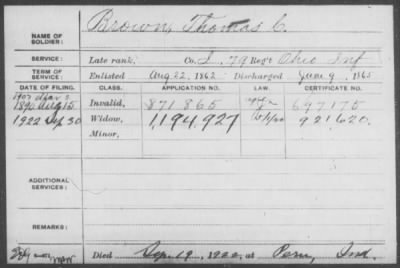 NAME OF SOLDIER: Brown, Thomas C.
SERVICE: Late rank, Co. I, 79 Reg't Ohio Inf
TERM OF SERVICE: Enlisted Aug. 22, 1862 Discharged June 9, 1865
DATE OF FILING. CLASS. APPLICATION NO. LAW. CERTIFICATE NO.
1907
1890 Aug 15 Invalid, 871865 697175
1922 Sep 30 Widow, 1,194,927 921620
Minor,
ADDITIONAL SERVICES:
REMARKS:
Died Sep. 19, 1922, at Peru, Ind.